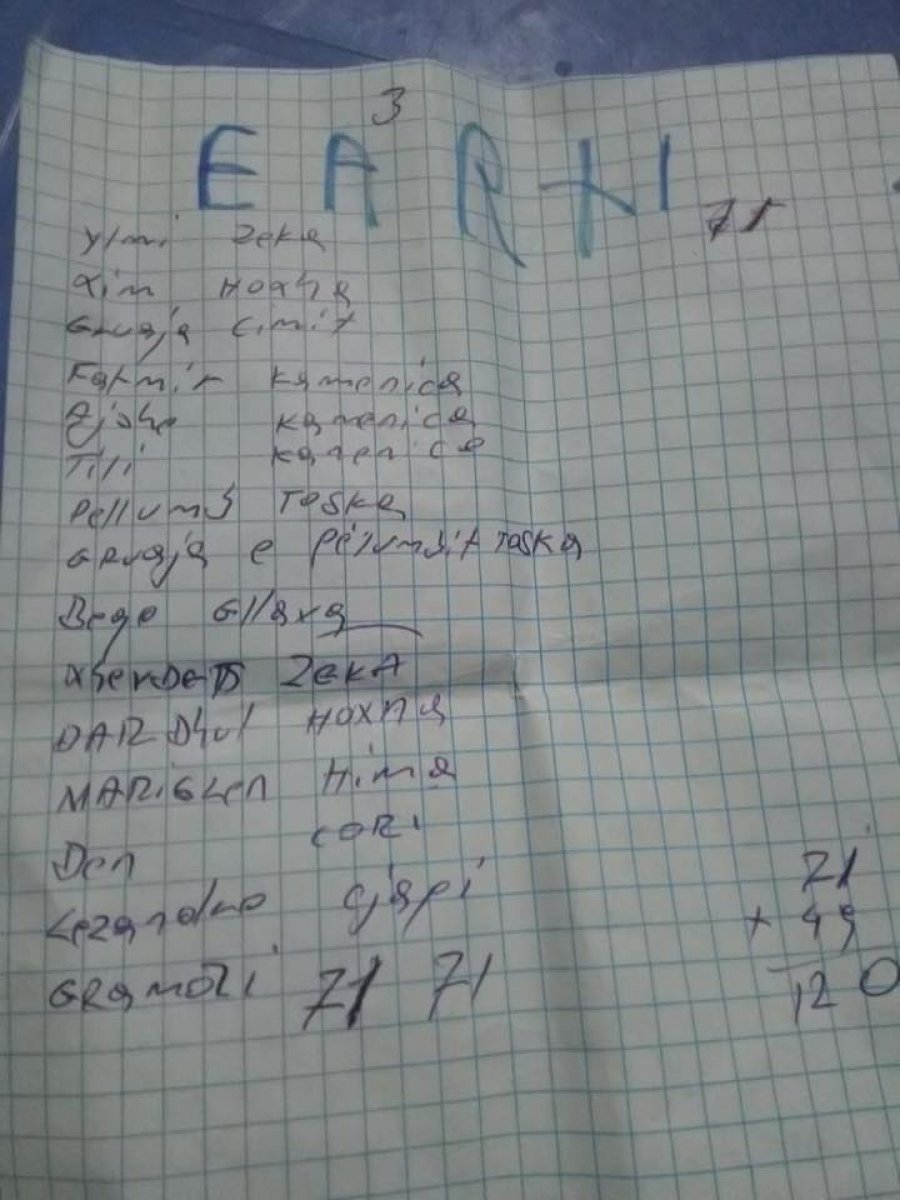 3
EARTI
71
Ylmi Zeka
Xim Hoxha
Gruaja Cimit
Fatmir Kamenica
Kamenica
Tili Kamenica
Pellumb Toska
Gruaja e Pëlumbit Toska
Bege Gllava
Xhendet Zeka
DARDhul HOXHa
MARiGLen Hima
Den CORI
Lezandro Gjapi
GRamozi 71 71
71
+ 49
120